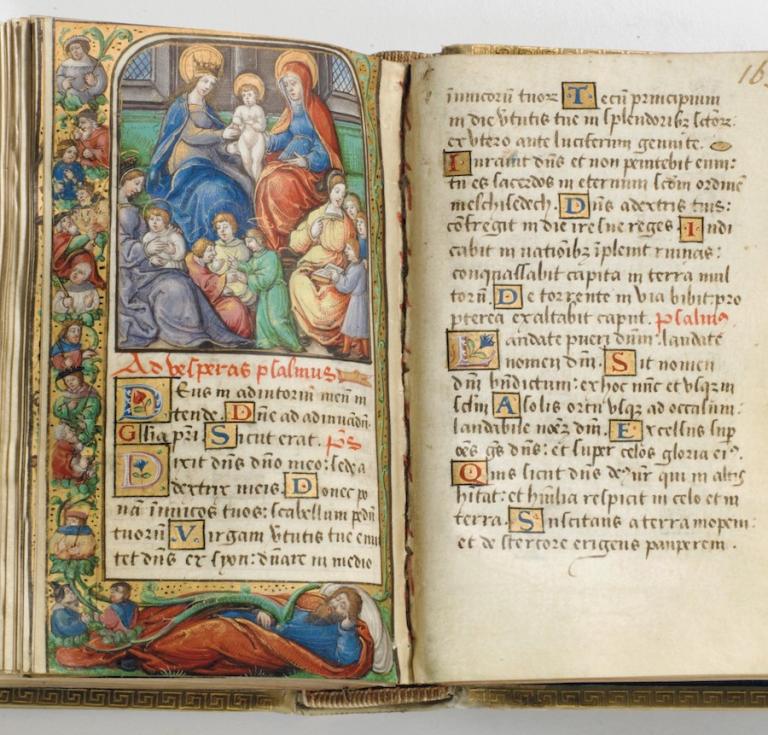 Ad vesperas psalmus
Deus in adiutoriũ meũ in
tende. Dñe ad adiuuãdũ.
Glia pri Sicut erat. ps
Dixit dñs dño meo: sede a
dextris meis. Donec po
nã inimicos tuos: scabellum pedũ
tuorũ. Virgam vtutis tue emi
tet dñs ex syon: dñare in medio
inimicorũ tuor̃ Tecũ principium
in die vtutis tue in splendoribz sctor̃:
ex vtero ante luciferum genui te.
Iurauit dñs et non penitebit eum:
tu es sacerdos in eternum scdm ordinẽ
melchisedech. Dñs a dextris tuis:
cõfregit in die ire sue reges. Iudi
cabit in nationibz ĩpleuit ruinas:
conquassabit capita in terra mul
torũ. De torrente in via bibit: pro
pterea exaltabit caput. psalmus
Laudate pueri dnm: laudate
nomen dñi. Sit nomen
dñi bñdictum: ex hoc nũc et vsqz in
sclm A solis ortu vsqz ad occasum:
laudabile noẽ dñi. Excelsus sup
oẽs gẽs dñs: et super celos gloria eiꝰ.
Quis sicut dñs deꝰ nr̃ qui in altis
hitat: et hũilia respicit in celo et in
terra. Suscitans a terra inopem:
et de stercore erigens pauperem.